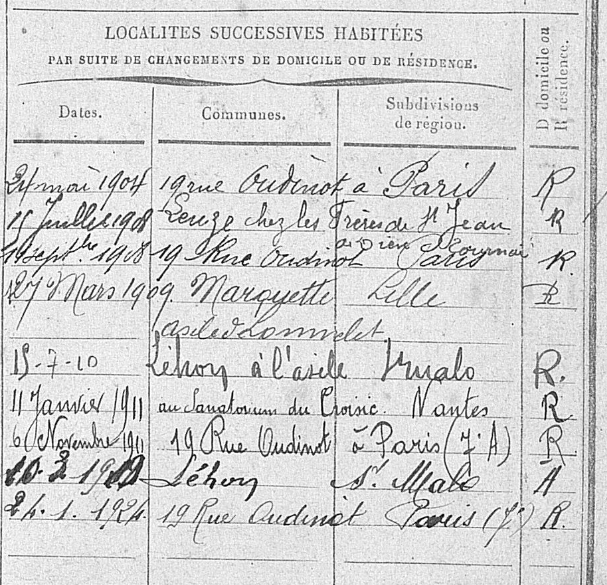 LOCALITES SUCCESSIVES HABITÉES
PAR SUITE DE CHANGEMENTS DE DOMICILE OU DE RÉSIDENCE.
D domicile ou
R résidence.
Dates.
Communes.
Subdivisions
de région.
24 mai 1904 19 rue Oudinot à Paris R
15 Juillet 1908 Leuze chez les Frères de St Jean R
de Dieu Tournai
1 Septbre 1908 19 Rue Oudinot Paris R.
27 Mars 1909. Marquette Lille R
asile de Lommelet
15-7-10 Léhon à l'asile St Malo R.
11 Janvier 1911 au Sanatorium du Croisic. Nantes R
6 Novembre 1911 19 Rue Oudinot à Paris (7e A) R
10 2 1912 Léhon St Malo
24. 1. 1924. 19 Rue Oudinot Paris (7e) R.